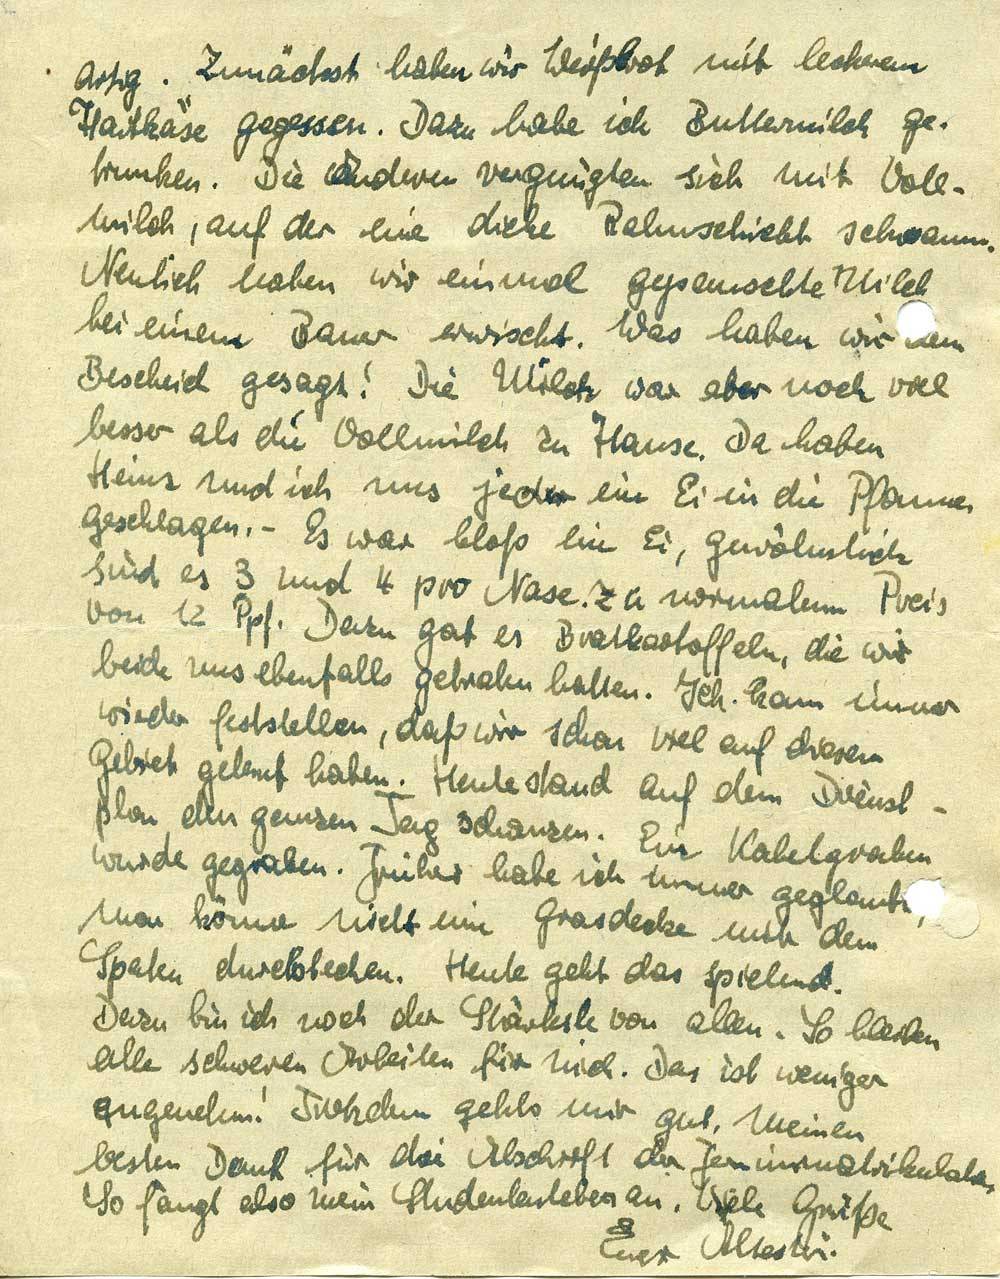 artig. Zunächst haben wir Weißbrot mit leckerem
Hartkäse gegessen. Dazu habe ich Buttermilch ge-
trunken. Die anderen vergnügten sich mit Voll-
milch, auf der eine dicke Rahmschicht schwamm.
Neulich haben wir einmal gepanschte Milch
bei einem Bauer erwischt. Was haben wir dem
Bescheid gesagt! Die Milch war aber noch viel
besser als die Vollmilch zu Hause. Da haben
Heinz und ich uns jeder ein Ei in die Pfanne
geschlagen. - Es war bloß ein Ei, gewöhnlich
sind es 3 und 4 pro Nase. Zu normalem Preis
von 12 Rpf. Dazu gab es Bratkartoffeln, die wir
beide uns ebenfalls gebraten hatten. Ich kann immer
wieder feststellen, daß wir schon viel auf diesem
Gebiet gelernt haben. Heute stand auf dem Dienst-
plan den ganzen Tag schanzen. Ein Kabelgraben
wurde gegraben. Früher habe ich immer geglaubt,
man könne nicht eine Grasdecke mit dem
Spaten durchstechen. Heute geht das spielend.
Dazu bin ich noch der Stärkste von allen. So bleiben
alle schweren Arbeiten für mich. Das ist weniger
angenehm! Trotzdem gehts mir gut. Meinen
besten Dank für die Abschrift der
So fängt also mein Studentenleben an. Viele Grüße
Euer Ältester.